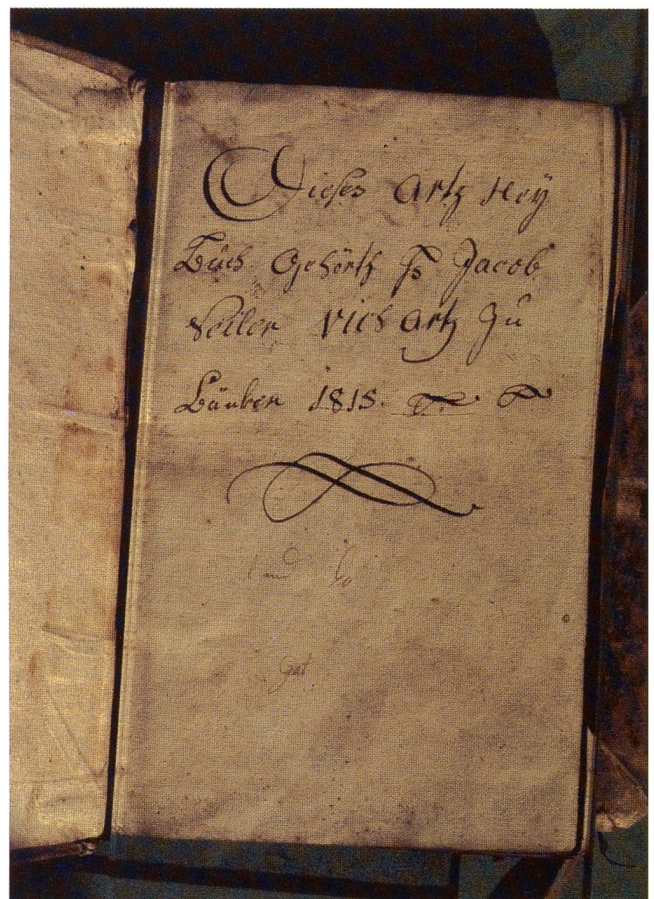 Dieses Artz Ney
Buch Gehörth Js Jacob
Seiler Vich Artz Zu
Läuben 1815.
und so
gut